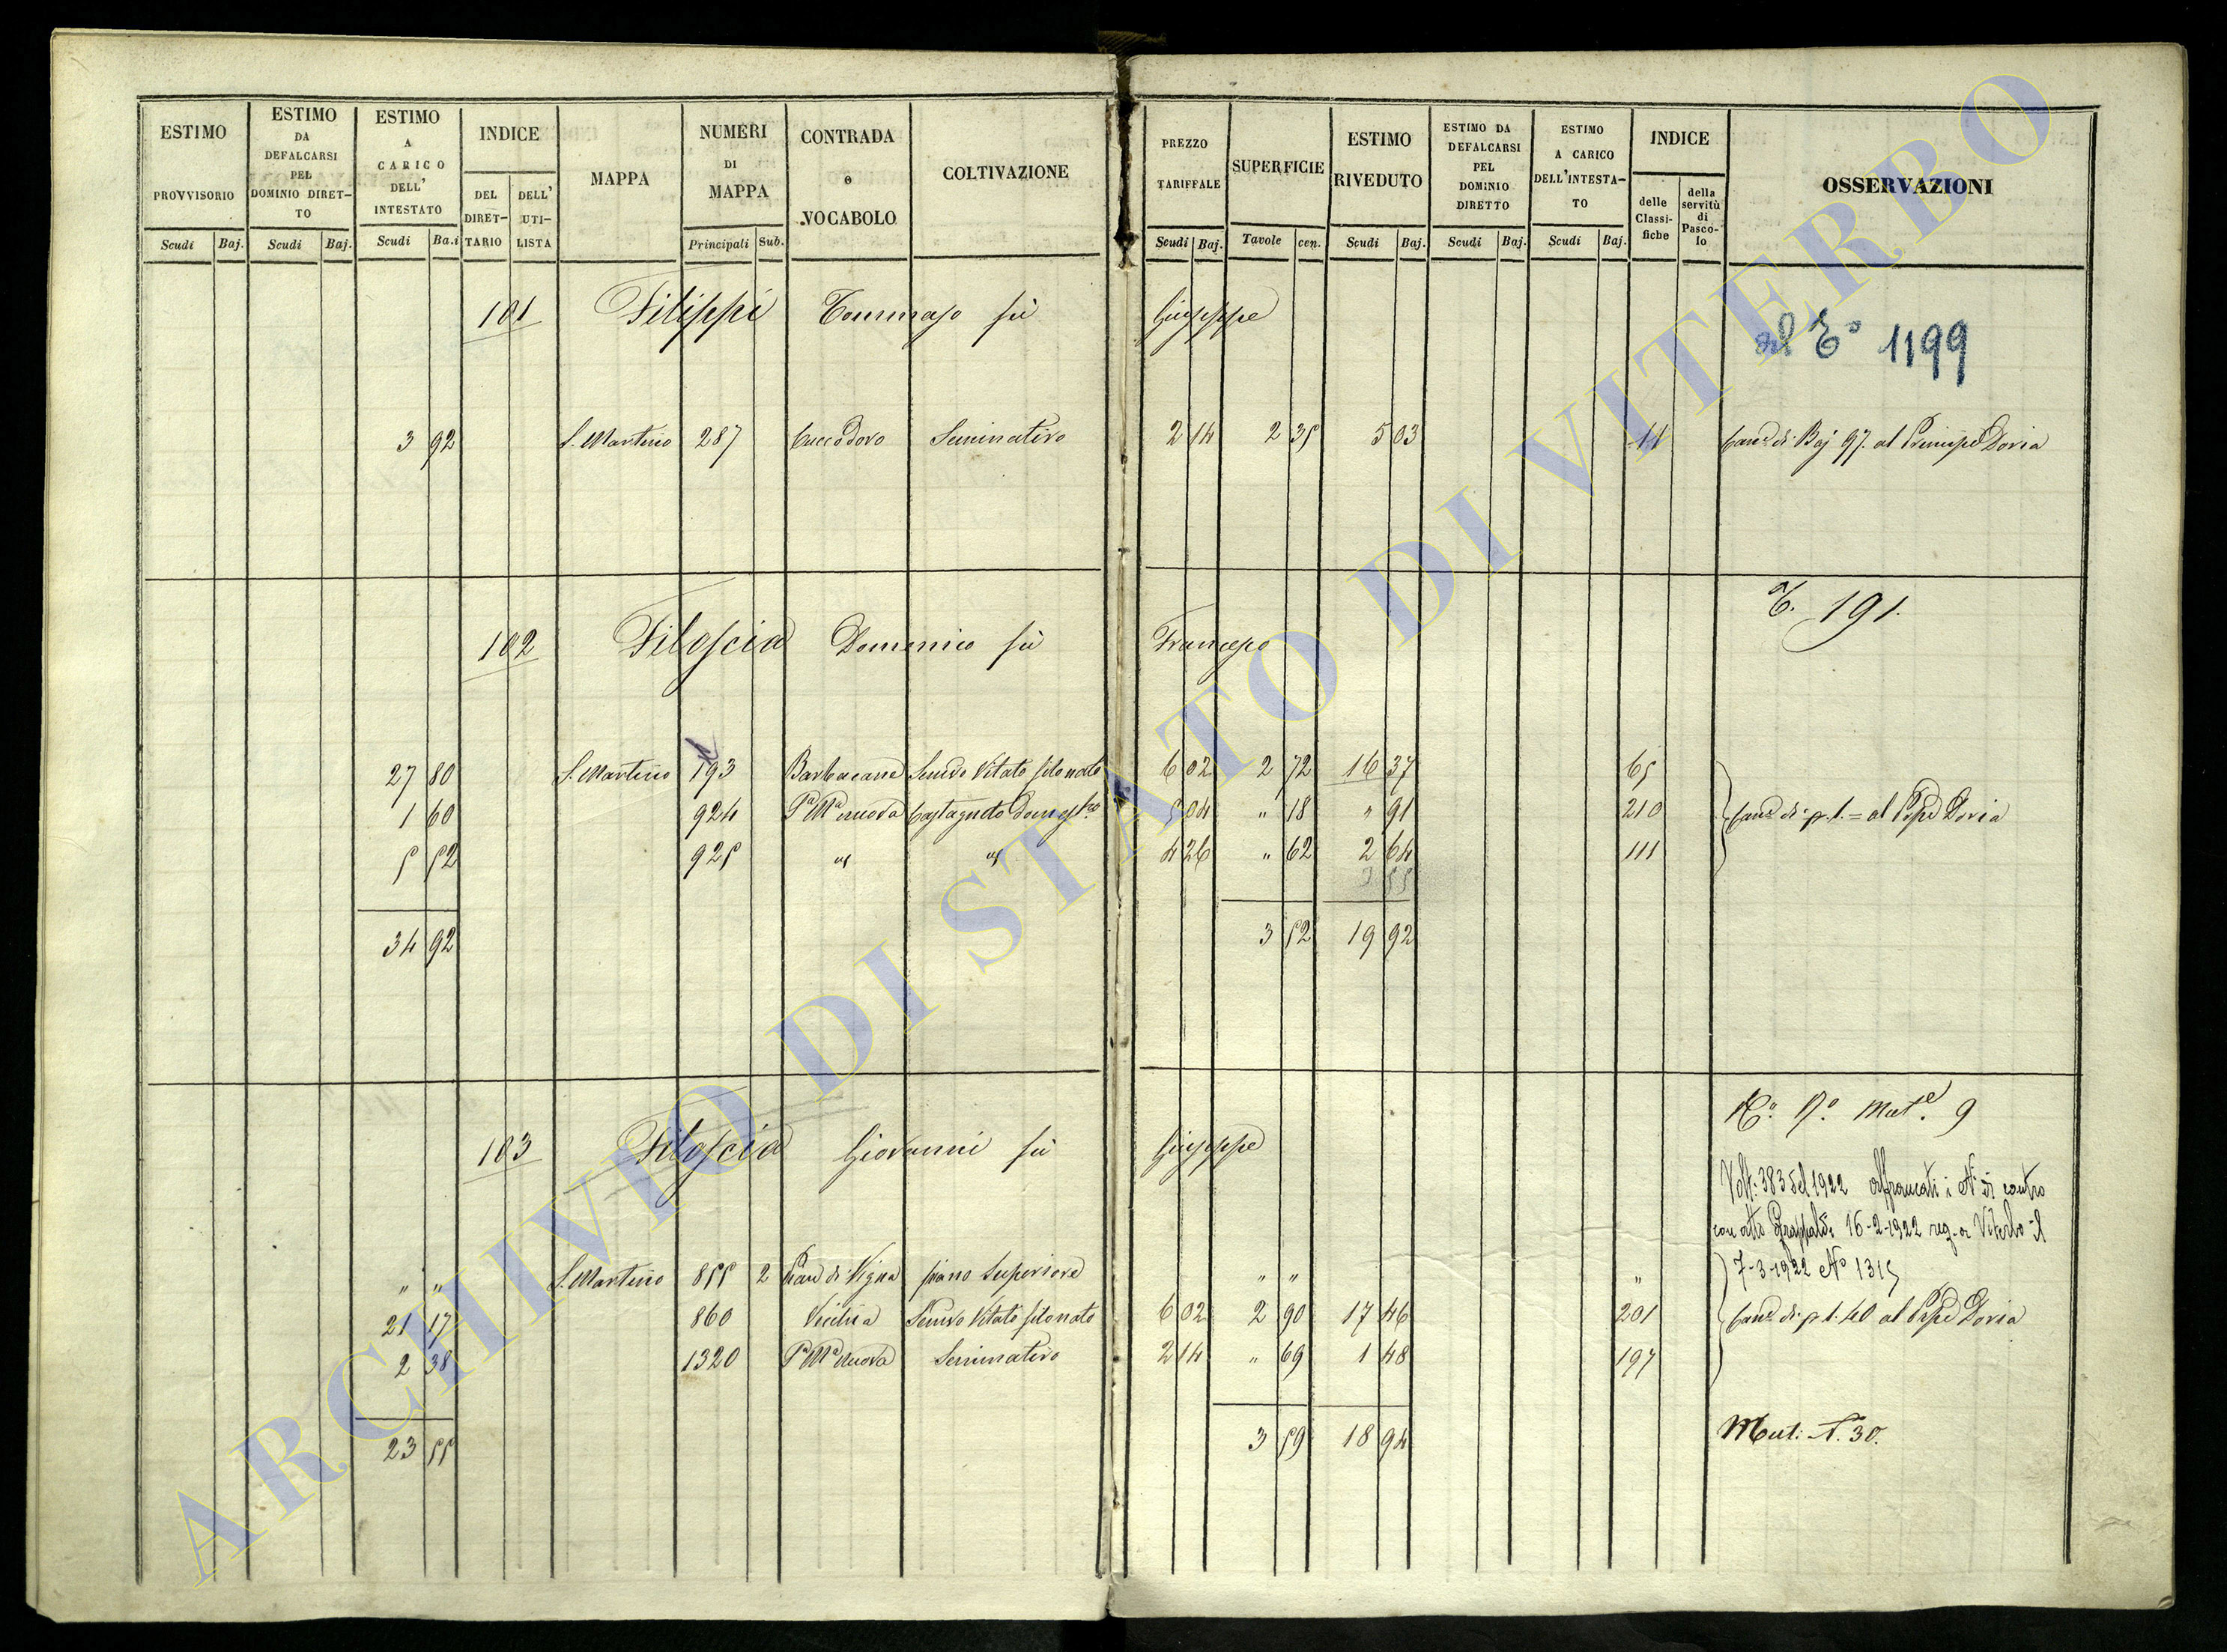 ESTIMO PROVVISORIO Scudi Baj.
ESTIMO DA DEFALCARSI PEL DOMINIO DIRETTO Scudi Baj.
ESTIMO A CARICO DELL' INTESTATO Scudi Ba.i
INDICE DEL DIRET-TARIO DELL' UTI-LISTA
MAPPA
NUMERI DI MAPPA Principali Sub.
CONTRADA o VOCABOLO
COLTIVAZIONE
PREZZO TARIFFALE Scudi Baj.
SUPERFICIE Tavole cen.
ESTIMO RIVEDUTO Scudi Baj.
ESTIMO DA DEFALCARSI PEL DOMINIO DIRETTO Scudi Baj.
ESTIMO A CARICO DELL'INTESTA-TO Scudi Baj.
INDICE delle Classi-fiche della servitù di Pasco-lo
OSSERVAZIONI
101 Filippi Tommaso fù Giuseppe
al E° 1199
3 92 S. Martino 287 Cuccodoro Seminativo 2 14 2 35 5 03 11 Can.e di Baj 97. al Principe Doria
191.
102 Filoscia Domenico fù Francesco
27 80 S. Martino 193 Barbacane Semivo Vitato 6 02 2 72 16 37 65
1 60 924 P.a M.a nuova Castagneto Domest.co 5 04 " 18 " 91 210 Can.e di 1. = al Ppe Doria
5 52 925 4 26 " 62 2 64 111
3 55
34 92 3 52 19 92
9
103 Filoscia Giovanni fù Giuseppe
Volt. 383 del 1922 affrancati i N di contro
con atto 16-2-1922 reg. a Viterbo il
7-3-1922 N° 1315
" " S. Martino 855 2 di Vigna piano Superiore " " "
21 17 860 Semivo Vitato 6 02 2 90 17 46 201 Can.e di 1:40 al Ppe Doria
2 38 1320 P.a M.a nuova Seminativo 2 14 " 69 1 48 197
23 55 3 59 18 94 Mut: N. 30.
ARCHIVIO DI STATO DI VITERBO